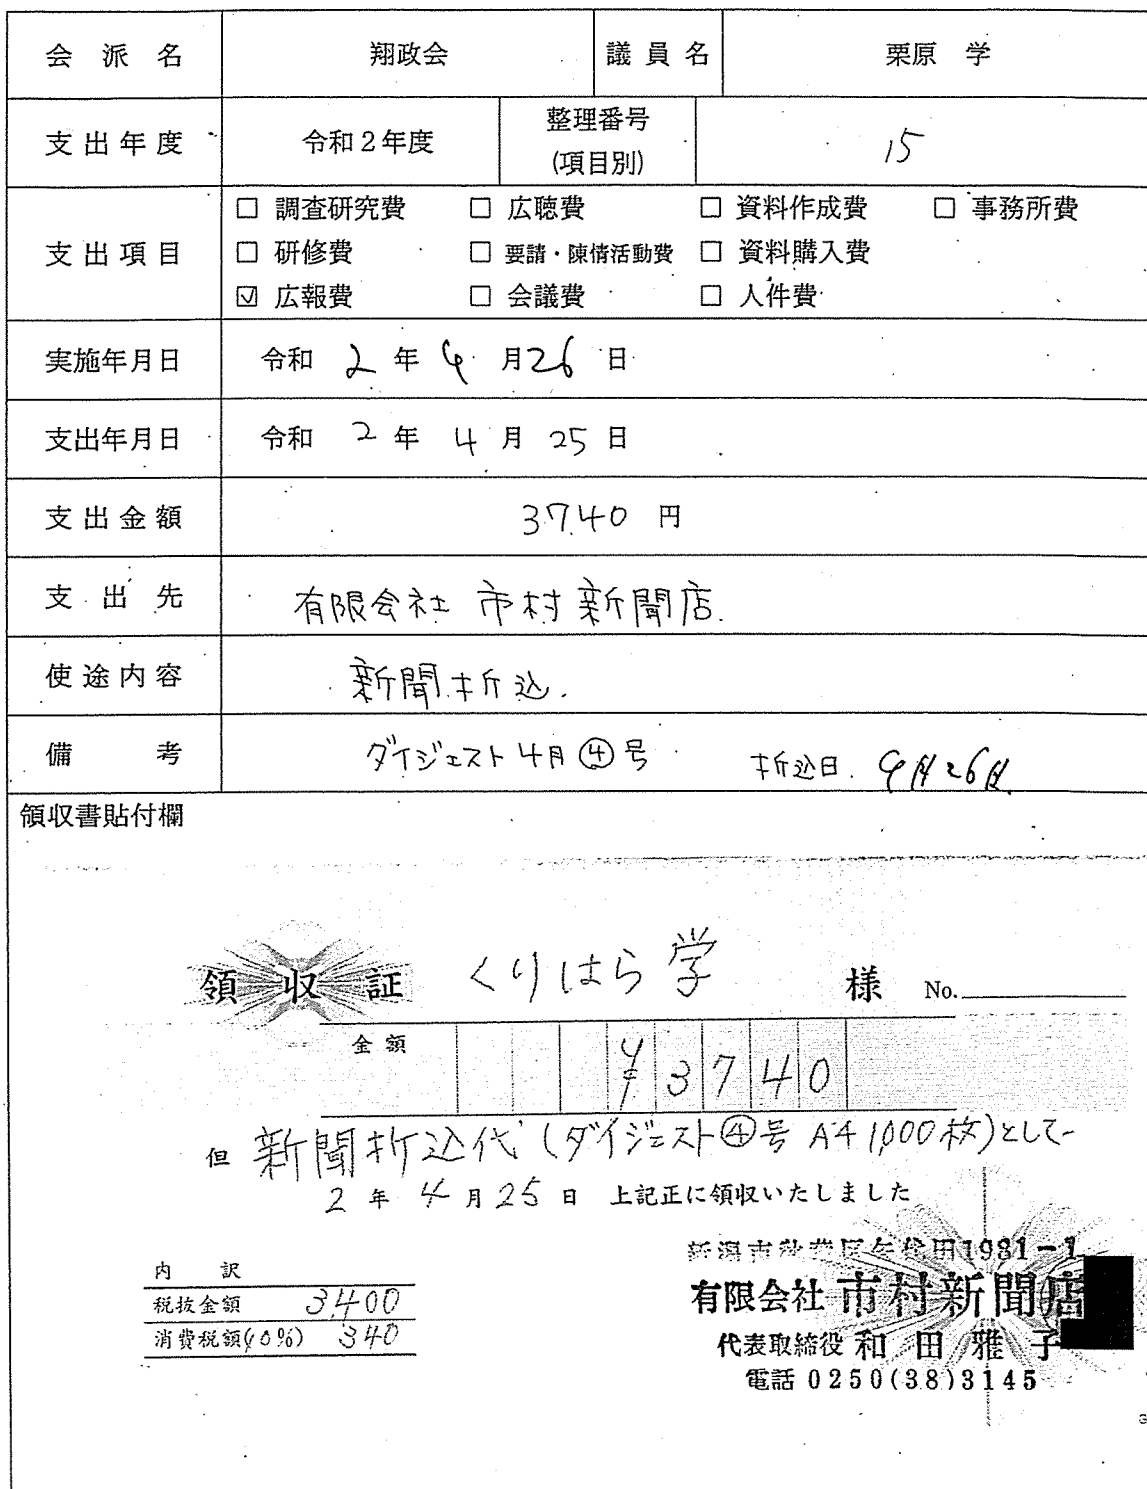 会派名 翔政会 議員名 栗原 学
支出年度 令和2年度 整理番号(項目別) 15
支出項目
☐ 調査研究費 ☐ 広聴費 ☐ 資料作成費 ☐ 事務所費
☐ 研修費 ☐ 要請・陳情活動費 ☐ 資料購入費
☑ 広報費 ☐ 会議費 ☐ 人件費
実施年月日 令和 2 年 4 月 26 日
支出年月日 令和 2 年 4 月 25 日
支出金額 3740 円
支出先 有限会社 市村新聞店
使途内容 新聞折込
備考 ダイジェスト4月④号 折込日 4月26日
領収書貼付欄
領収証 くりはら学 様 No.
金額 ¥3740
但 新聞折込代(ダイジェスト④号 A4 1,000枚)として
2 年 4 月 25 日 上記正に領収いたしました
内訳
税抜金額 3,400
消費税額(10%) 340
新潟市秋葉区 1981-1
有限会社 市村新聞店
代表取締役 和田雅子
電話 0250(38)3145